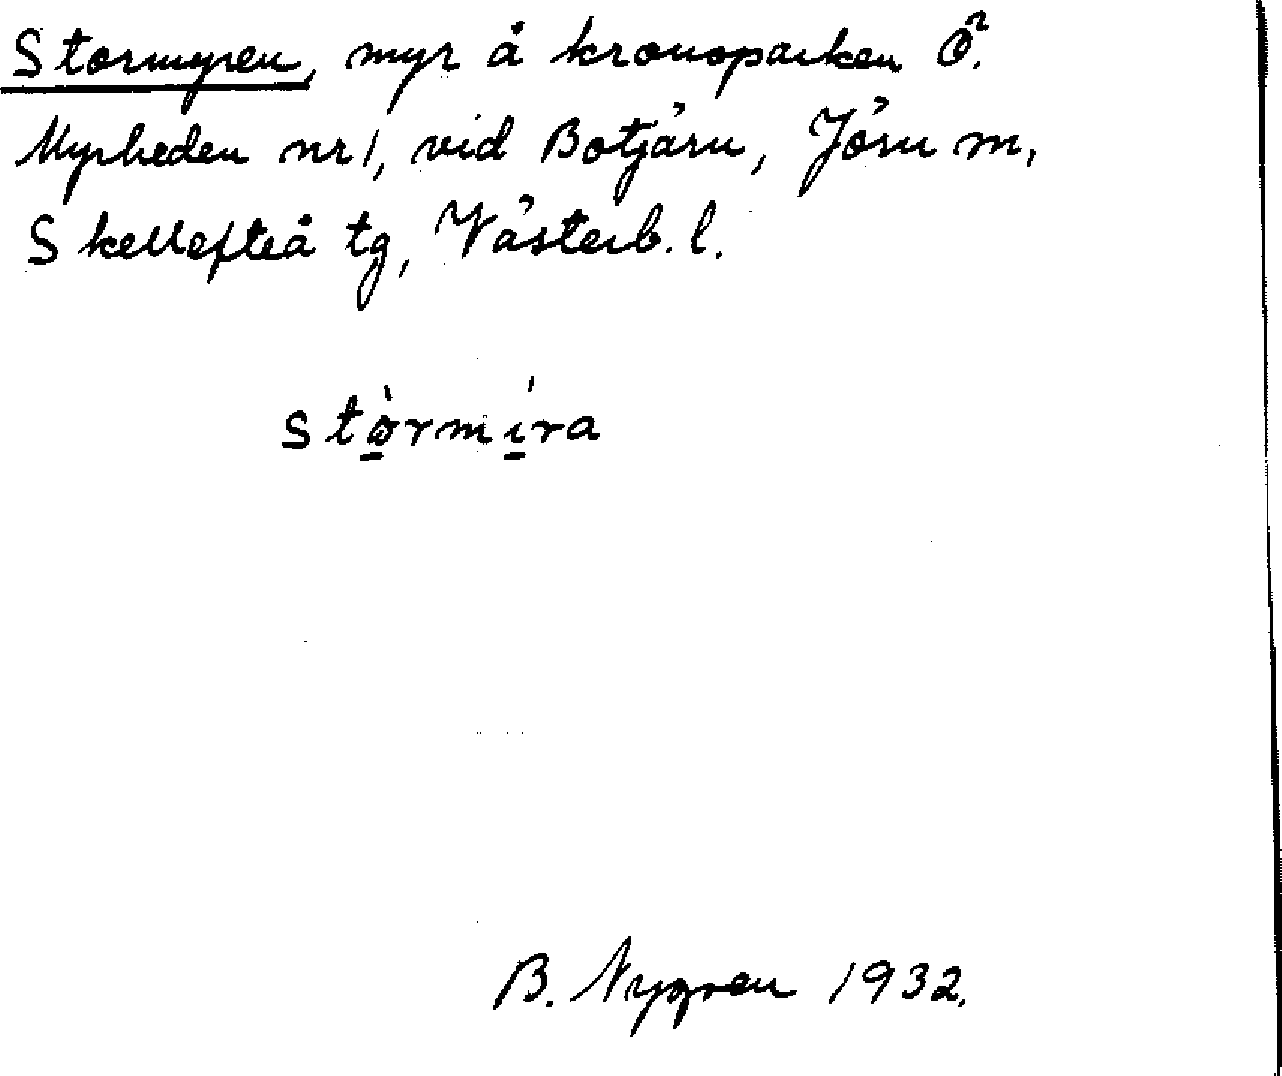 Stormyren, myr å kronoparken Ö.
Myrheden nr 1, vid Botjärn, Jörn m,
Skellefteå tg, Västerb. l.
stòrmíra
B. Nygren 1932.